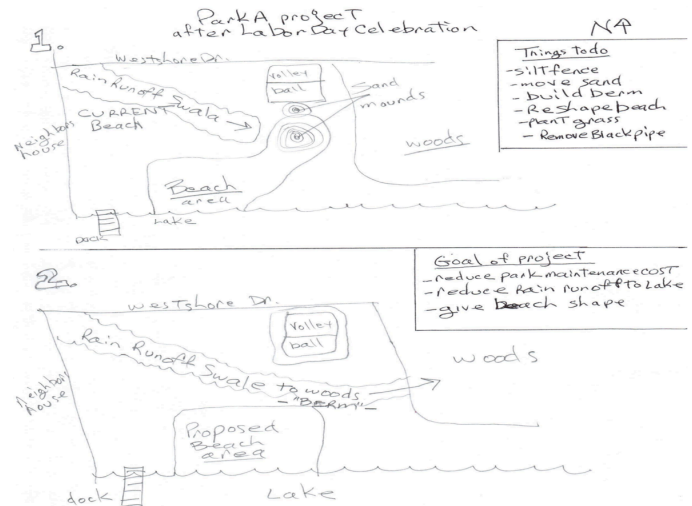 Park A project
after Labor Day Celebration
N
1.
Westshore Dr.
Things to do
- silt fence
- move sand
- build berm
- Reshape beach
- plant grass
- Remove Black pipe
Rain Runoff Swala
volley
ball
Sand
mounds
CURRENT
Beach
Neighbors
house
woods
Beach
area
Lake
Dock
2.
Goal of project
- reduce park maintenance cost
- reduce Rain runoff to Lake
- give beach shape
Westshore Dr.
volley
ball
Rain Runoff Swale to woods
- "BERM" -
woods
Neighbors
house
Proposed
Beach
area
dock
Lake